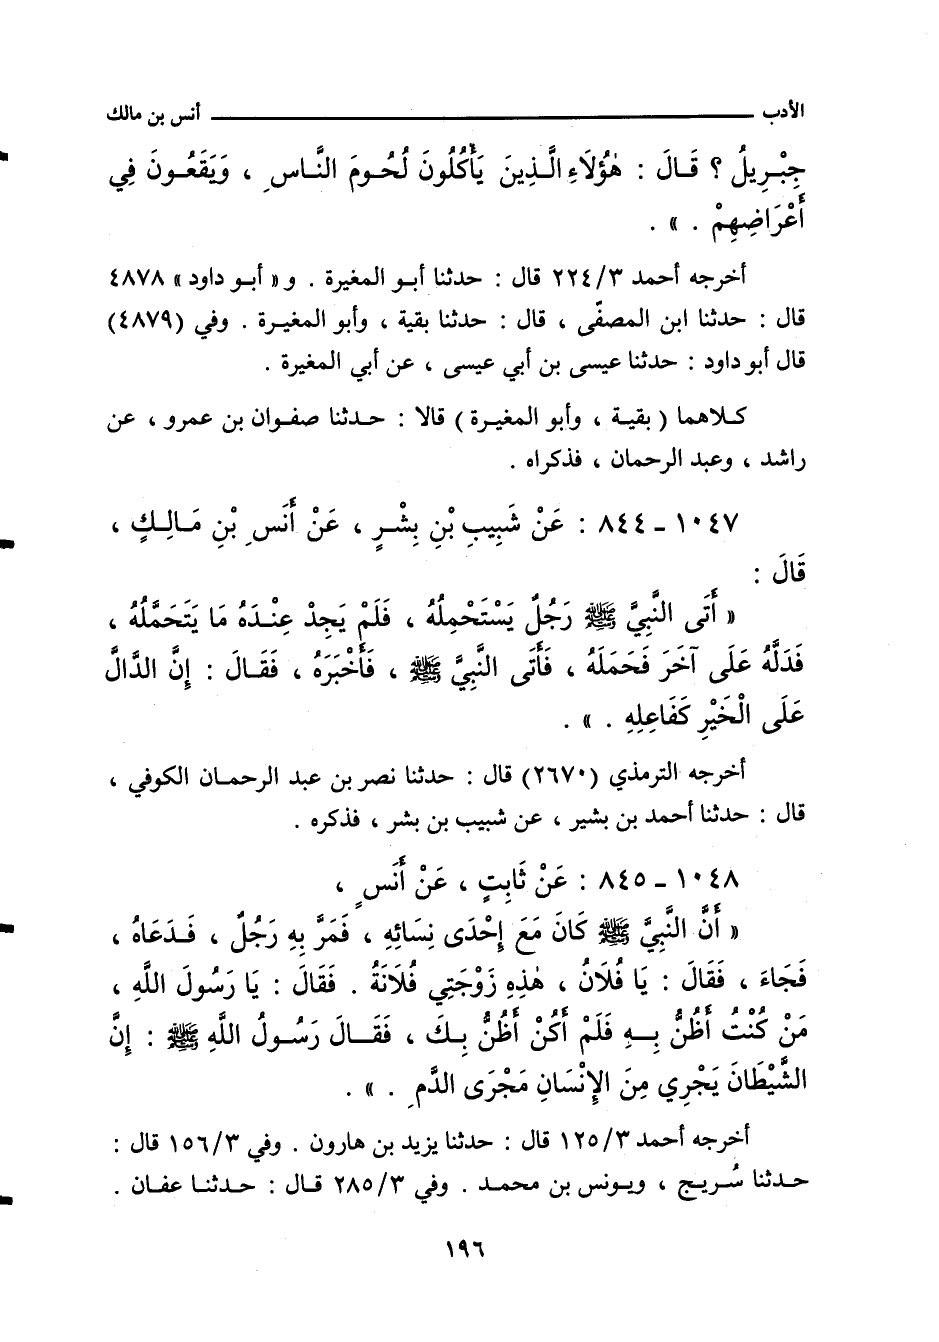 الأدب ــــــــــــــــــــــــــــــــــــــــ أنس بن مالك
جِبْرِيلُ ؟ قَالَ : هٰؤُلَاءِ الَّذِينَ يَأْكُلُونَ لُحُومَ النَّاسِ ، وَيَقَعُونَ فِي
أَعْرَاضِهِمْ . » .
أخرجه أحمد ٢٢٤/٣ قال : حدثنا أبو المغيرة . و « أبو داود » ٤٨٧٨
قال : حدثنا ابن المصفَّى ، قال : حدثنا بقية ، وأبو المغيرة . وفي (٤٨٧٩)
قال أبو داود : حدثنا عيسى بن أبي عيسى ، عن أبي المغيرة .
كلاهما ( بقية ، وأبو المغيرة ) قالا : حدثنا صفوان بن عمرو ، عن
راشد ، وعبد الرحمان ، فذكراه .
١٠٤٧ - ٨٤٤ : عَنْ شَبِيبِ بْنِ بِشْرٍ ، عَنْ أَنَسِ بْنِ مَالِكٍ ،
قَالَ :
« أَتَى النَّبِيَّ ﷺ رَجُلٌ يَسْتَحْمِلُهُ ، فَلَمْ يَجِدْ عِنْدَهُ مَا يَتَحَمَّلُهُ ،
فَدَلَّهُ عَلَى آخَرَ فَحَمَلَهُ ، فَأَتَى النَّبِيَّ ﷺ ، فَأَخْبَرَهُ ، فَقَالَ : إِنَّ الدَّالَّ
عَلَى الْخَيْرِ كَفَاعِلِهِ . » .
أخرجه الترمذي (٢٦٧٠) قال : حدثنا نصر بن عبد الرحمان الكوفي ،
قال : حدثنا أحمد بن بشير ، عن شبيب بن بشر ، فذكره .
١٠٤٨ - ٨٤٥ : عَنْ ثَابِتٍ ، عَنْ أَنَسٍ ،
« أَنَّ النَّبِيَّ ﷺ كَانَ مَعَ إِحْدَى نِسَائِهِ ، فَمَرَّ بِهِ رَجُلٌ ، فَدَعَاهُ ،
فَجَاءَ ، فَقَالَ : يَا فُلَانُ ، هٰذِهِ زَوْجَتِي فُلَانَةُ . فَقَالَ : يَا رَسُولَ اللَّهِ ،
مَنْ كُنْتُ أَظُنُّ بِهِ فَلَمْ أَكُنْ أَظُنُّ بِكَ ، فَقَالَ رَسُولُ اللَّهِ ﷺ : إِنَّ
الشَّيْطَانَ يَجْرِي مِنَ الإِنْسَانِ مَجْرَى الدَّمِ . » .
أخرجه أحمد ١٢٥/٣ قال : حدثنا يزيد بن هارون . وفي ١٥٦/٣ قال :
حدثنا سُريج ، ويونس بن محمد . وفي ٢٨٥/٣ قال : حدثنا عفان .
١٩٦